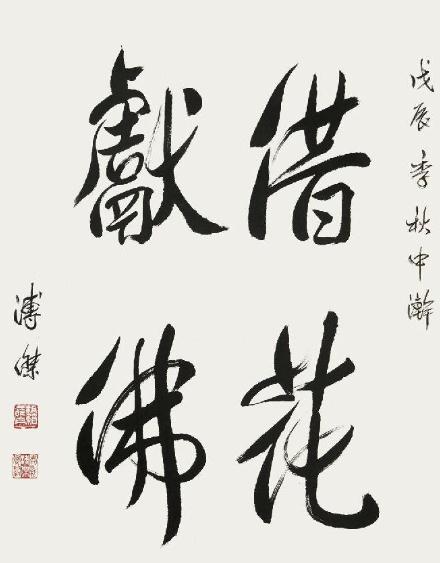 戊辰季秋中澣
借花
獻佛
溥傑